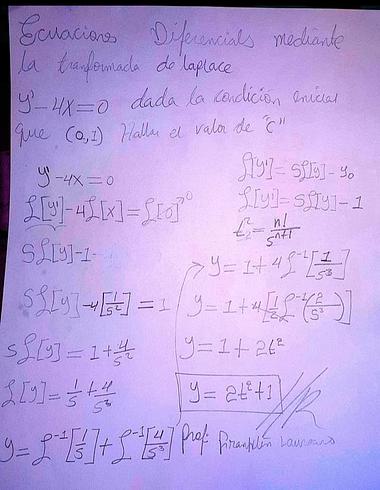 Ecuaciones Diferencials mediante
la tranformada de laplace
y' - 4x = 0 dada la condición inicial
que (0,1) Hallar el valor de "C"
y' - 4x = 0
ℒ[y'] - 4ℒ[x] = ℒ[0]↗0
sℒ[y] - 1 -
sℒ[y] - 4[1/s²] = 1
sℒ[y] = 1 + 4/s²
ℒ[y] = 1/s + 4/s³
y = ℒ⁻¹[1/s] + ℒ⁻¹[4/s³]
ℒ[y'] = sℒ[y] - y₀
ℒ[y'] = sℒ[y] - 1
= n!/sⁿ⁺¹
y = 1 + 4ℒ⁻¹[1/s³]
y = 1 + 4[1/2 ℒ⁻¹(2/s³)]
y = 1 + 2t²
y = 2t² + 1
Prof: